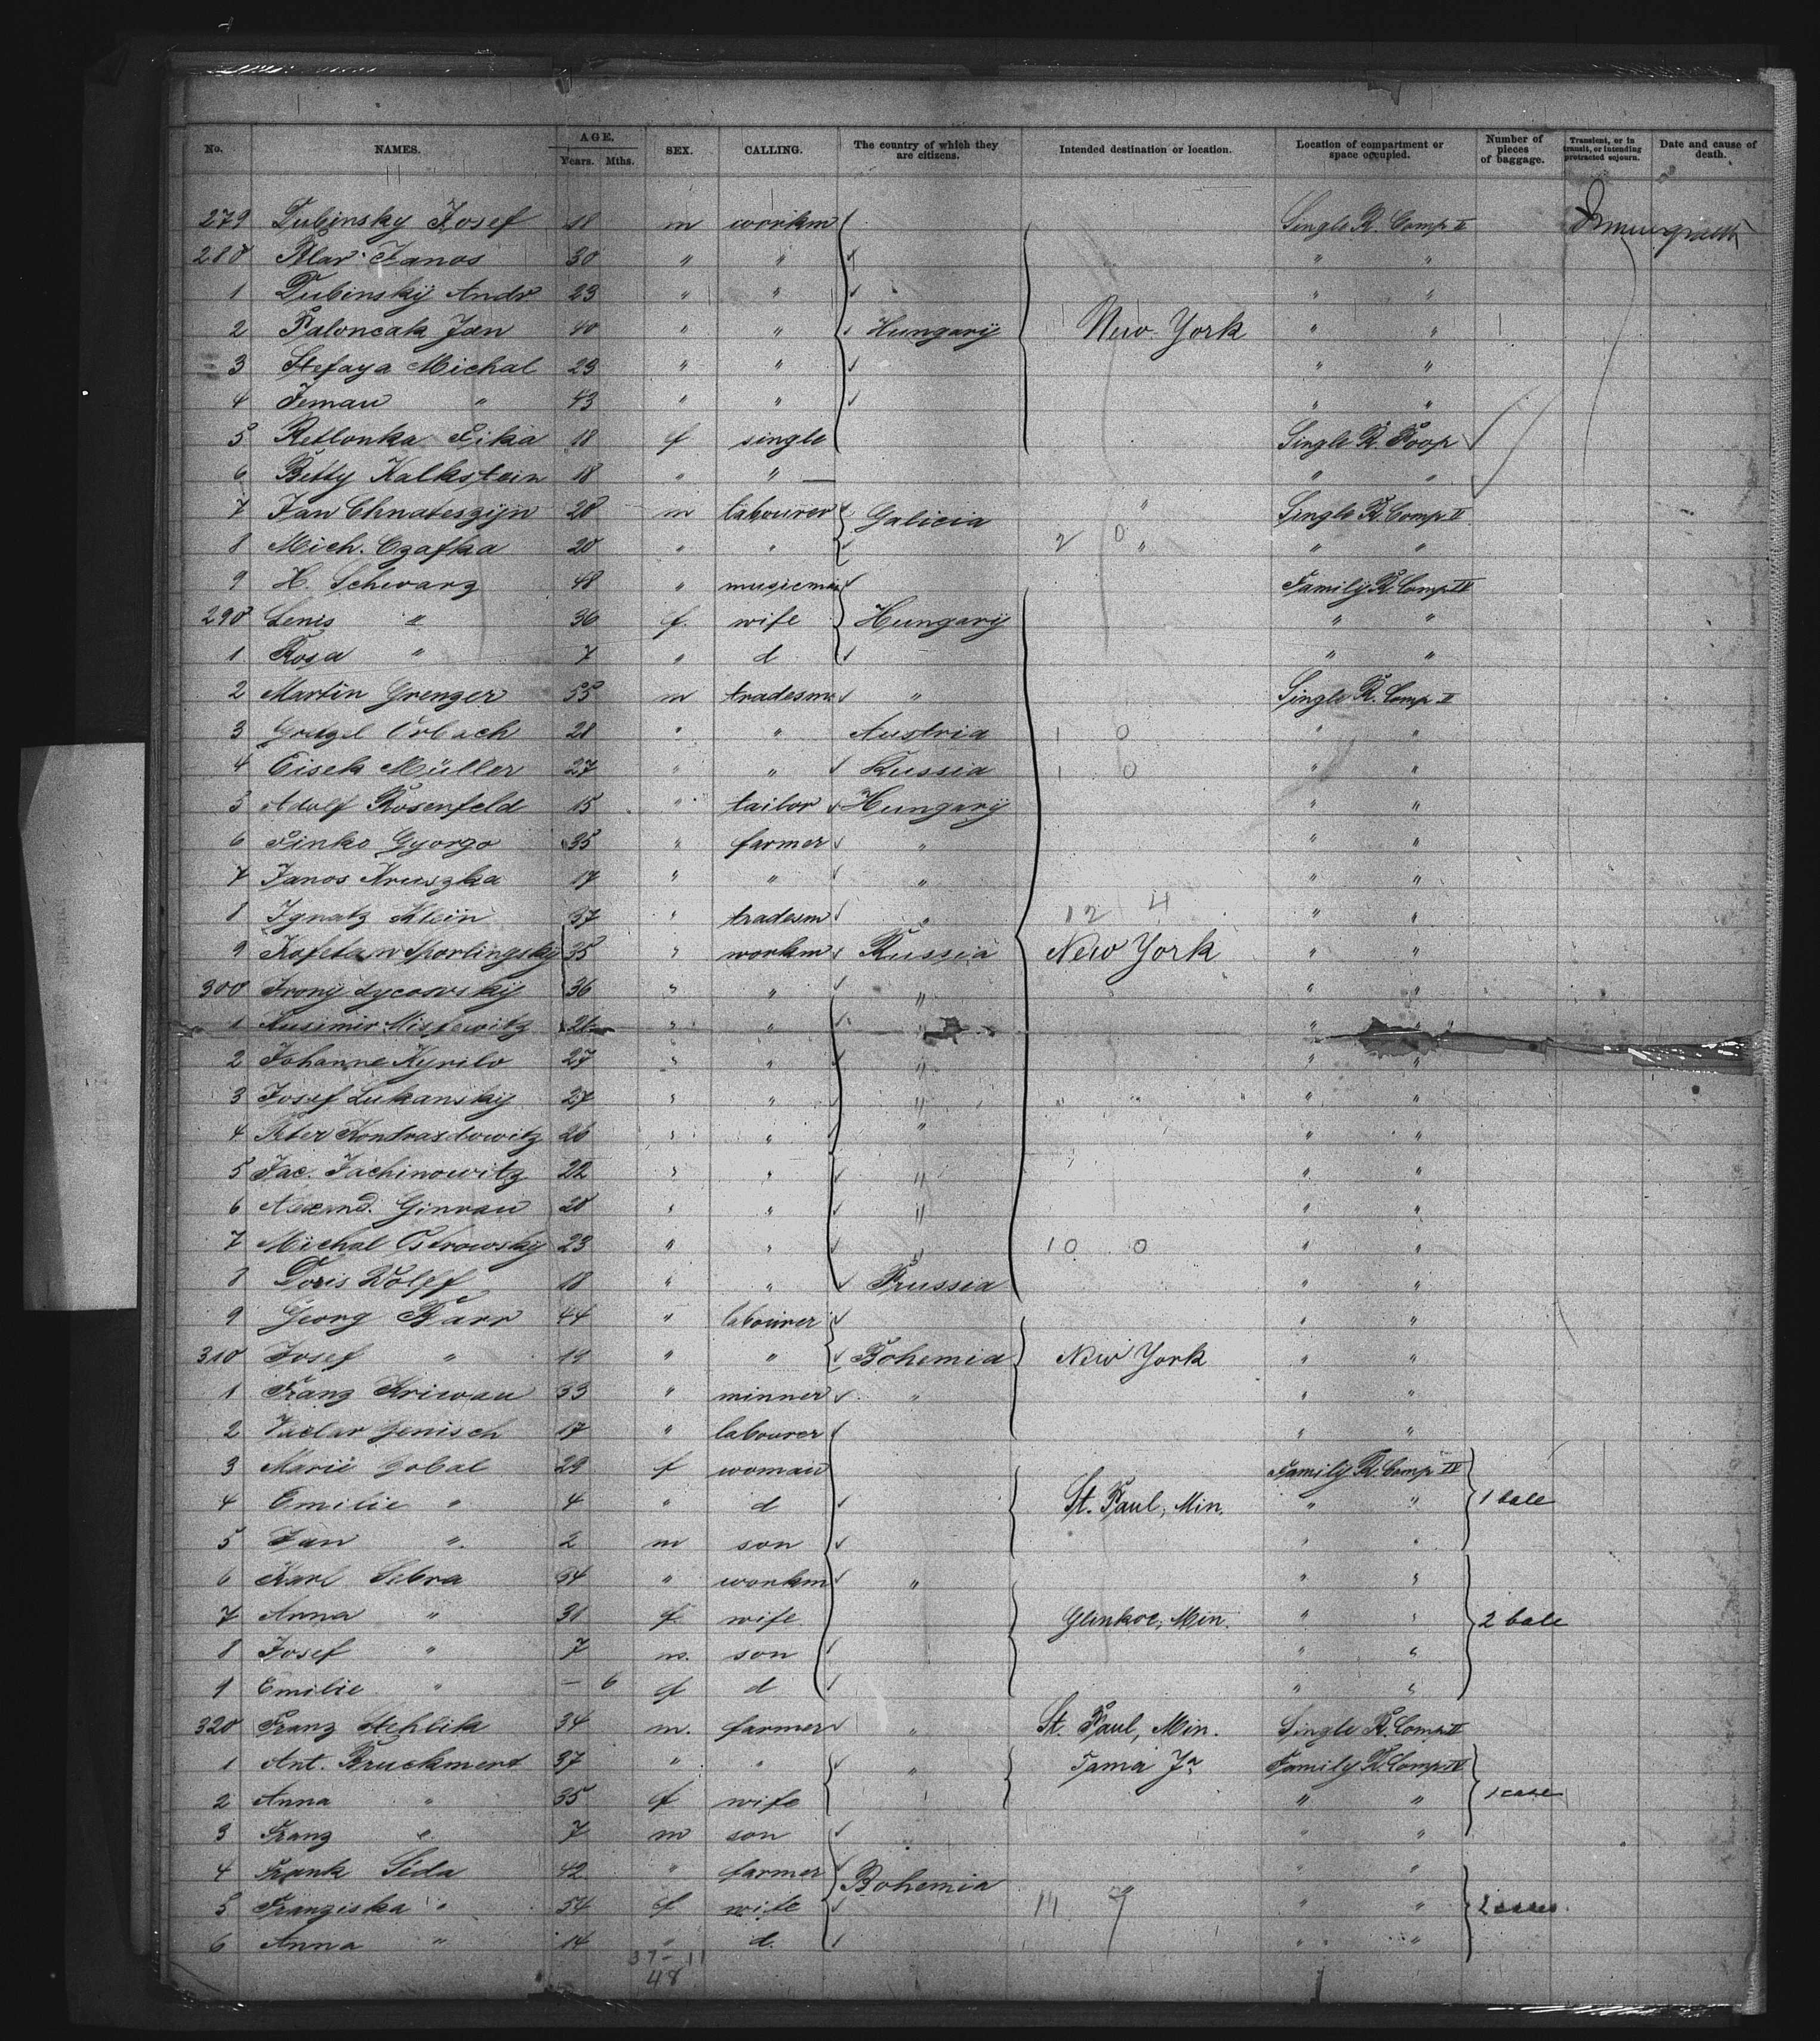 No. NAMES. AGE. Years. Mths. SEX. CALLING. The country of which they are citizens. Intended destination or location. Location of compartment or space occupied. Number of pieces of baggage. Transient, or in transit, or intending protracted sojourn. Date and cause of death.
279 Dubinsky Josef 18 m workm Single R. Comp II
280 Janos 30 " " " "
1 Dubinskÿ Andr 23 " " " "
2 Paloncak Jan 40 " " Hungarÿ New York " "
3 Stefaya Michal 29 " " " "
4 Jeman " 43 " " " "
5 Retlonka 18 f single Single R. Poop
6 Betty Kalkstein 18 " " " "
7 Jan Chnateszÿn 20 m labourer Galicia " Single R. Comp II
8 Mich. Czafka 20 " " 2 0 " " "
9 H. Schwarz 48 " Family R. Comp IV
290 Lenis " 36 f. wife Hungarÿ " "
1 Rosa " 7 " d " "
2 Martin Grenger 55 m tradesm " Single R. Comp II
3 Orbach 21 " " Austria 1 0 " "
4 Eisek Müller 27 " " Russia 1 0 " "
5 Adolf Rosenfeld 15 " tailor Hungarÿ " "
6 Gyorgo 35 " farmer " " "
7 Janos Kruszka 17 " " " " "
8 Ignatz Klein 37 " tradesm " 12 4 " "
9 35 " workm Russia New York " "
300 36 " " " " "
1 Mistewitz 21 " " " " "
2 Johanne Kyrilo 27 " " " " "
3 Josef Lukanskÿ 27 " " " " " " " "
4 Peter 26 " " " " "
5 Jac. Jachinowitz 22 " " " " "
6 Alexand. Ginrau 20 " " " " "
7 Michal Ostrowskÿ 23 " " " 10 0 " "
8 Doris Wolff 18 " " Prussia " "
9 Georg Barr 44 " labourer " "
310 Josef " 19 " " Bohemia New York " "
1 Franz Kriwau 33 " minner " " "
2 Vaclav Jenisch 17 " labourer " "
3 Marie Zobal 29 f woman Family R. Comp IV
4 Emilie " 4 " d St. Paul, Min. " " 1 bale
5 Jan " 2 m son " "
6 Karl Sibra 34 " workm " " "
7 Anna " 31 f. wife Glenkoe, Min. " " 2 bale
8 Josef " 7 m. son " "
9 Emilie " — 6 f d " "
320 Franz Stehlik 34 m. farmer " St. Paul, Min. Single R. Comp II
1 Ant. Bruckment 37 " " " Tama Ja Family R. Comp IV
2 Anna " 35 f wife " " 1 case
3 Franz " 7 m son " "
4 Frank Sida 42 " farmer Bohemia " "
5 Franziska " 54 f wife 11 7 " " " 2 cases
6 Anna " 14 " d. " "
37 - 11
48